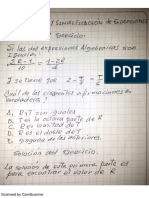 y Simplificación de Expresiones
Ejercicio:
Si las dos expresiones Algebraicas son
iguales:
2R-1 = 1-2R
10 4
y se tiene que 2 -
Cuál de las siguientes afirmaciones es
verdadera?
A. R y T son iguales
B. T es la octava parte de R
C. R es el doble de T
D. R es la mitad de T
Solución del Ejercicio.
La solución de esta primera parte es
para encontrar el valor de R
Scanned by CamScanner